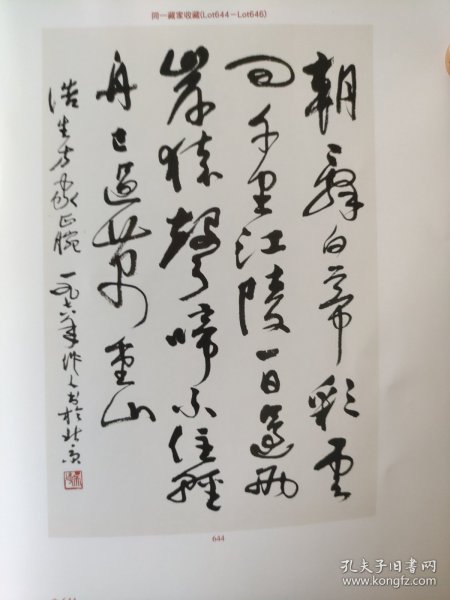 同一藏家收藏(Lot644—Lot646)
朝辭白帝彩雲
間千里江陵一日還兩
岸猿聲啼不住輕
舟已過萬重山
浩生方家正腕 一九七六年作人書於北京
644
孔夫子旧书网
www.kongfz.com